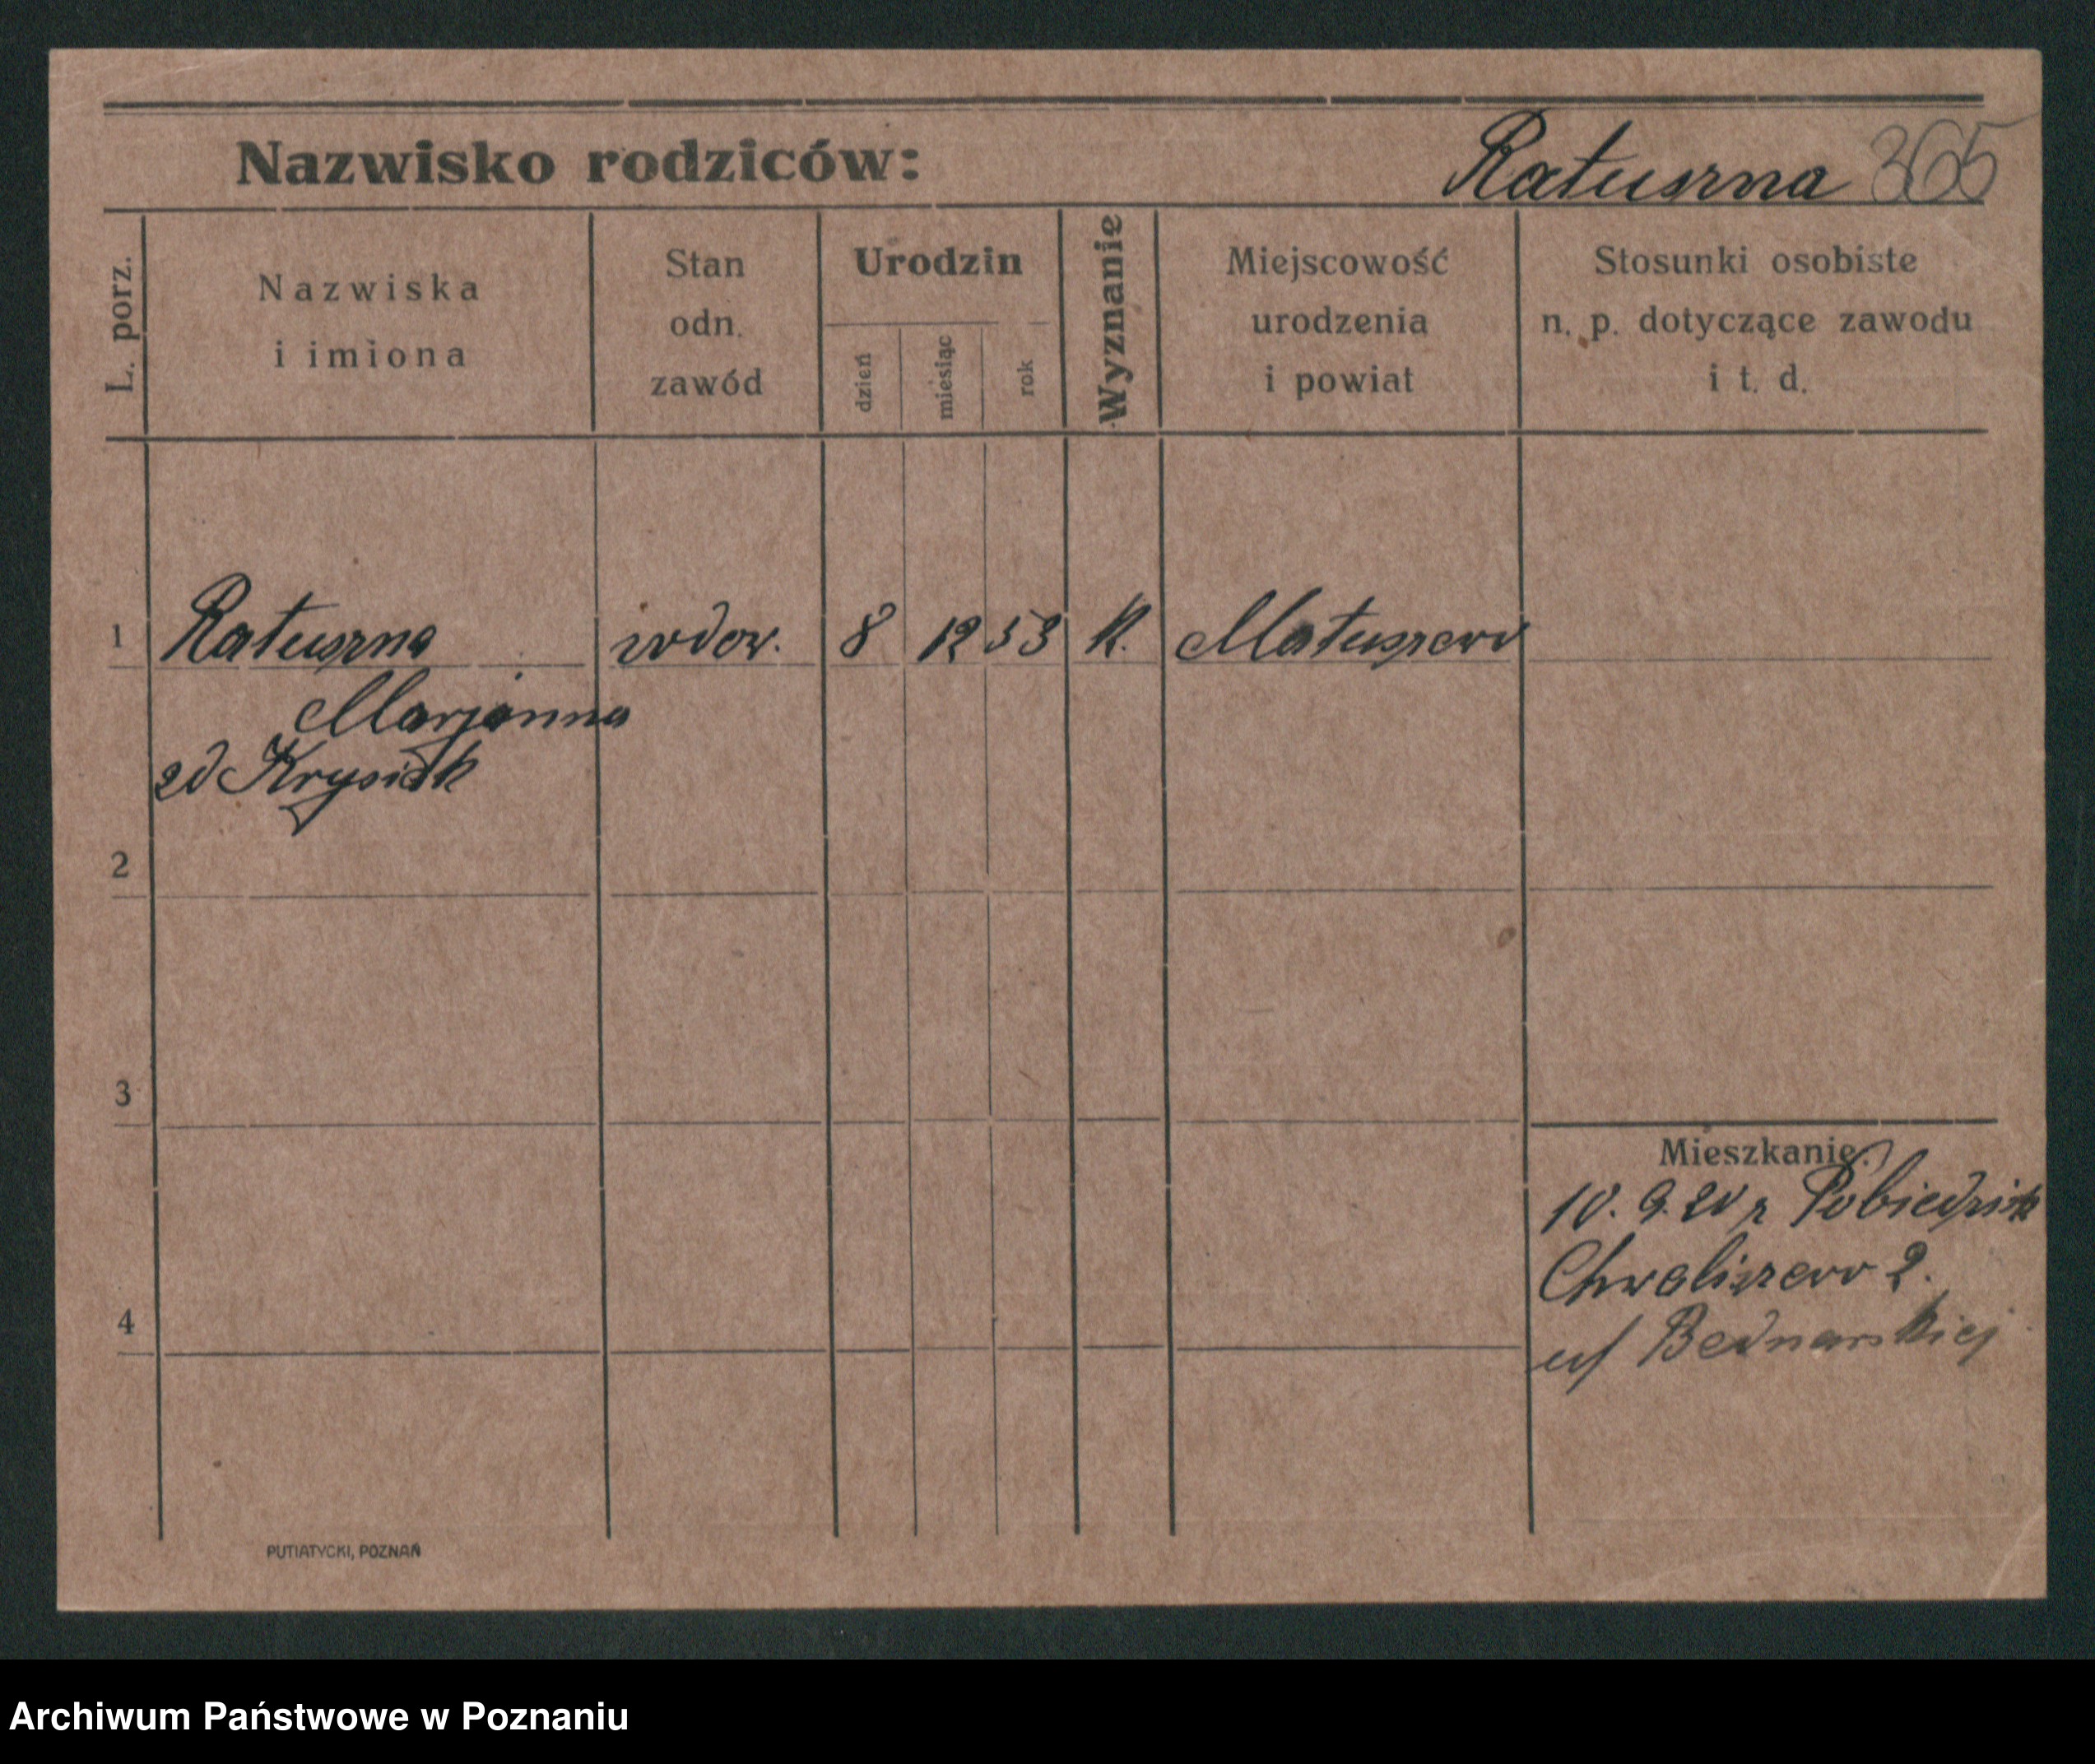 Nazwisko rodziców: Ratuszna 365
L. porz.
Nazwiska
i imiona
Stan
odn.
zawód
Urodzin
dzień
miesiąc
rok
Wyznanie
Miejscowość
urodzenia
i powiat
Stosunki osobiste
n. p. dotyczące zawodu
i t. d.
1 Ratuszna wdow. 8 12 53 k. Matuszewo
Marjanna
zd Krysiak
2
3
4
Mieszkanie.
10. 9. 20 z Pobiedzisk
Chwaliszewo 2.
u/ Bednarskiej
PUTIATYCKI, POZNAŃ
Archiwum Państwowe w Poznaniu